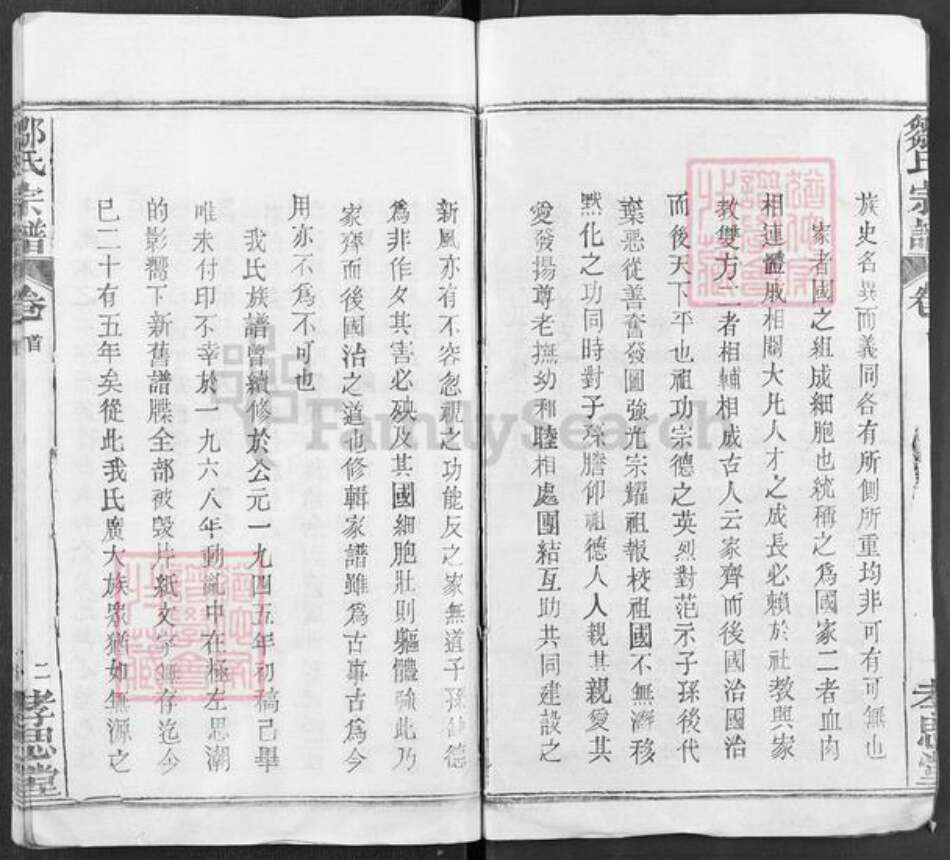 族史名異而義同各有所側所重均非可有可無也
家者國之組成細胞也統稱之爲國家二者血肉
相連體戚相關大凡人才之成長必賴於社教與家
教雙方二者相輔相成古人云家齊而後國治國治
而後天下平也祖功宗德之英烈對范示子孫後代
棄惡從善奮發圖強光宗耀祖報校祖國不無潛移
默化之功同時對子孫膽仰祖德人人親其親愛其
愛發揚尊老撫幼和睦相處團結互助共同建設之
鄒氏宗譜
卷首
二
孝思堂
新風亦有不容忽視之功能反之家無道子孫缺德
爲非作夕其害必殃及其國細胞壯則軀體強此乃
家齊而後國治之道也修輯家譜雖爲古事古爲今
用亦不爲不可也
我氏族譜曾續修於公元一九四五年初稿已畢
唯未付印不幸於一九六八年動亂中在極左思潮
的影響下新舊譜牒全部被毀片紙文字無存迄今
已二十有五年矣從此我氏廣大族眾猶如無源之
鄒氏宗譜
卷首
二
孝思堂
FamilySearch